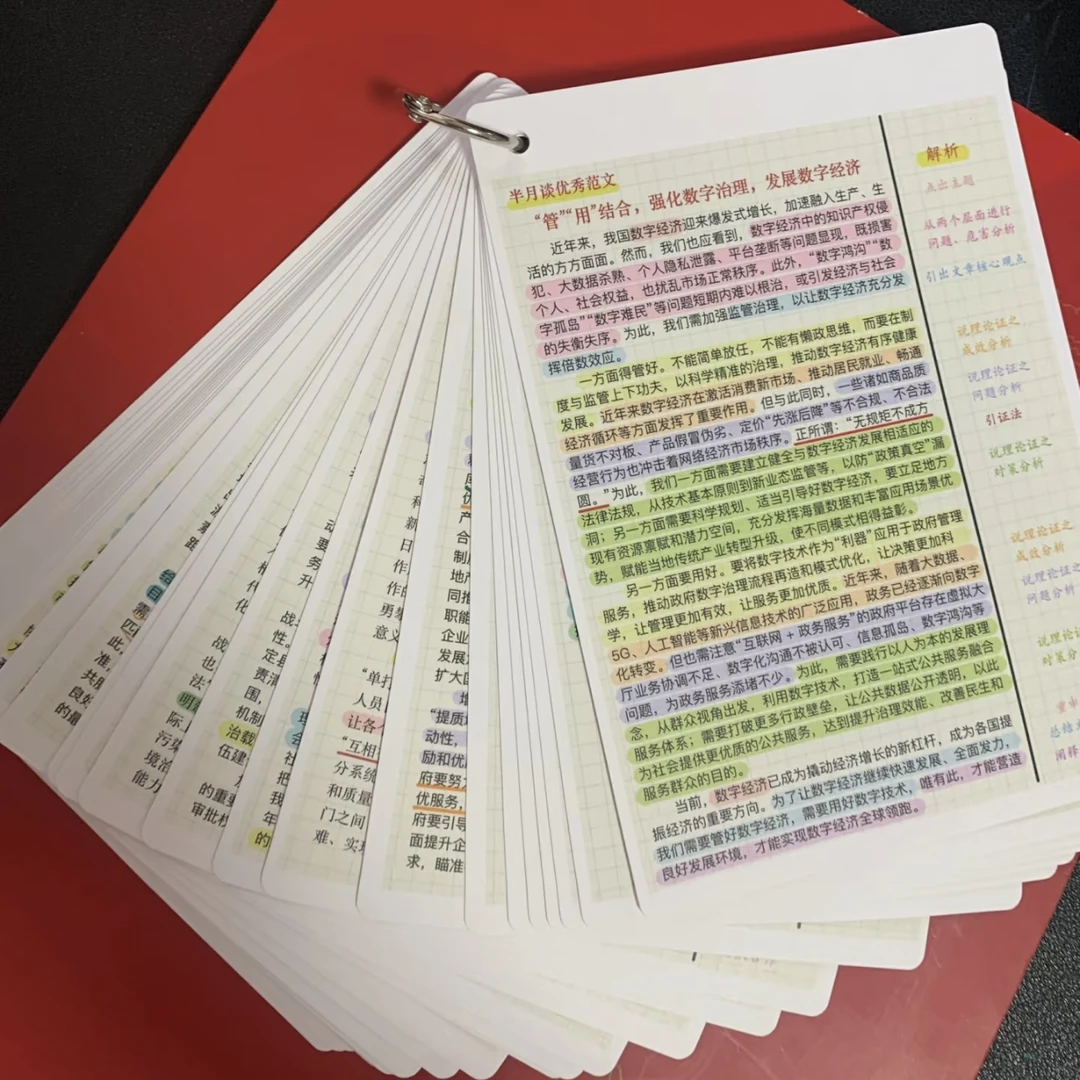 半月谈优秀范文
“管”“用”结合，强化数字治理，发展数字经济
近年来，我国数字经济迎来爆发式增长，加速融入生产、生
活的方方面面。然而，我们也应看到，数字经济中的知识产权侵
犯、大数据杀熟、个人隐私泄露、平台垄断等问题显现，既损害
个人、社会权益，也扰乱市场正常秩序。此外，“数字鸿沟”“数
字孤岛”“数字难民”等问题短期内难以根治，或引发经济与社会
的失衡失序。为此，我们需加强监管治理，以让数字经济充分发
挥倍数效应。
一方面得管好。不能简单放任，不能有懒政思维，而要在制
度与监管上下功夫，以科学精准的治理，推动数字经济有序健康
发展。近年来数字经济在激活消费新市场、推动居民就业、畅通
经济循环等方面发挥了重要作用。但与此同时，一些诸如商品质
量货不对板、产品假冒伪劣、定价“先涨后降”等不合规、不合法
经营行为也冲击着网络经济市场秩序。正所谓：“无规矩不成方
圆。”为此，我们一方面需要建立健全与数字经济发展相适应的
法律法规，从技术基本原则到新业态监管等，以防“政策真空”漏
洞；另一方面需要科学规划、适当引导好数字经济，要立足地方
现有资源禀赋和潜力空间，充分发挥海量数据和丰富应用场景优
势，赋能当地传统产业转型升级，使不同模式相得益彰。
另一方面要用好。要将数字技术作为“利器”应用于政府管理
服务，推动政府数字治理流程再造和模式优化，让决策更加科
学，让管理更加有效，让服务更加优质。近年来，随着大数据、
5G、人工智能等新兴信息技术的广泛应用，政务已经逐渐向数字
化转变。但也需注意“互联网 + 政务服务”的政府平台存在虚拟大
厅业务协调不足、数字化沟通不被认可、信息孤岛、数字鸿沟等
问题，为政务服务添堵不少。为此，需要践行以人为本的发展理
念，从群众视角出发，利用数字技术，打造一站式公共服务融合
服务体系；需要打破更多行政壁垒，让公共数据公开透明，以此
为社会提供更优质的公共服务，达到提升治理效能、改善民生和
服务群众的目的。
当前，数字经济已成为撬动经济增长的新杠杆，成为各国提
振经济的重要方向。为了让数字经济继续快速发展、全面发力，
我们需要管好数字经济，需要用好数字技术，唯有此，才能营造
良好发展环境，才能实现数字经济全球领跑。
解析
点出主题
从两个层面进行
问题、危害分析
引出文章核心观点
说理论证之
成效分析
说理论证之
问题分析
引证法
说理论证之
对策分析
说理论证之
成效分析
说理论证之
问题分析
说理论证
对策分
重申
总结
阐释
产
合
制
地产
同推
职能
企业
发展
扩大
增
“提质
动性，
励和优
府要努
优服务，
府要引导
面提升企
求，瞄准
新
日
作
作的
勇
意义
“单打
人员
让各
“互相
分系统
和质量
门之间
难、实现
动
要
务
升
战
性。
定
责
围，
机制
治
伍建
的重要
审批
需
四
此，
准，
共
良好
的最
明
际
污染
境治
能力